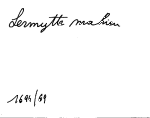 Lermytte mahieu
1694/59